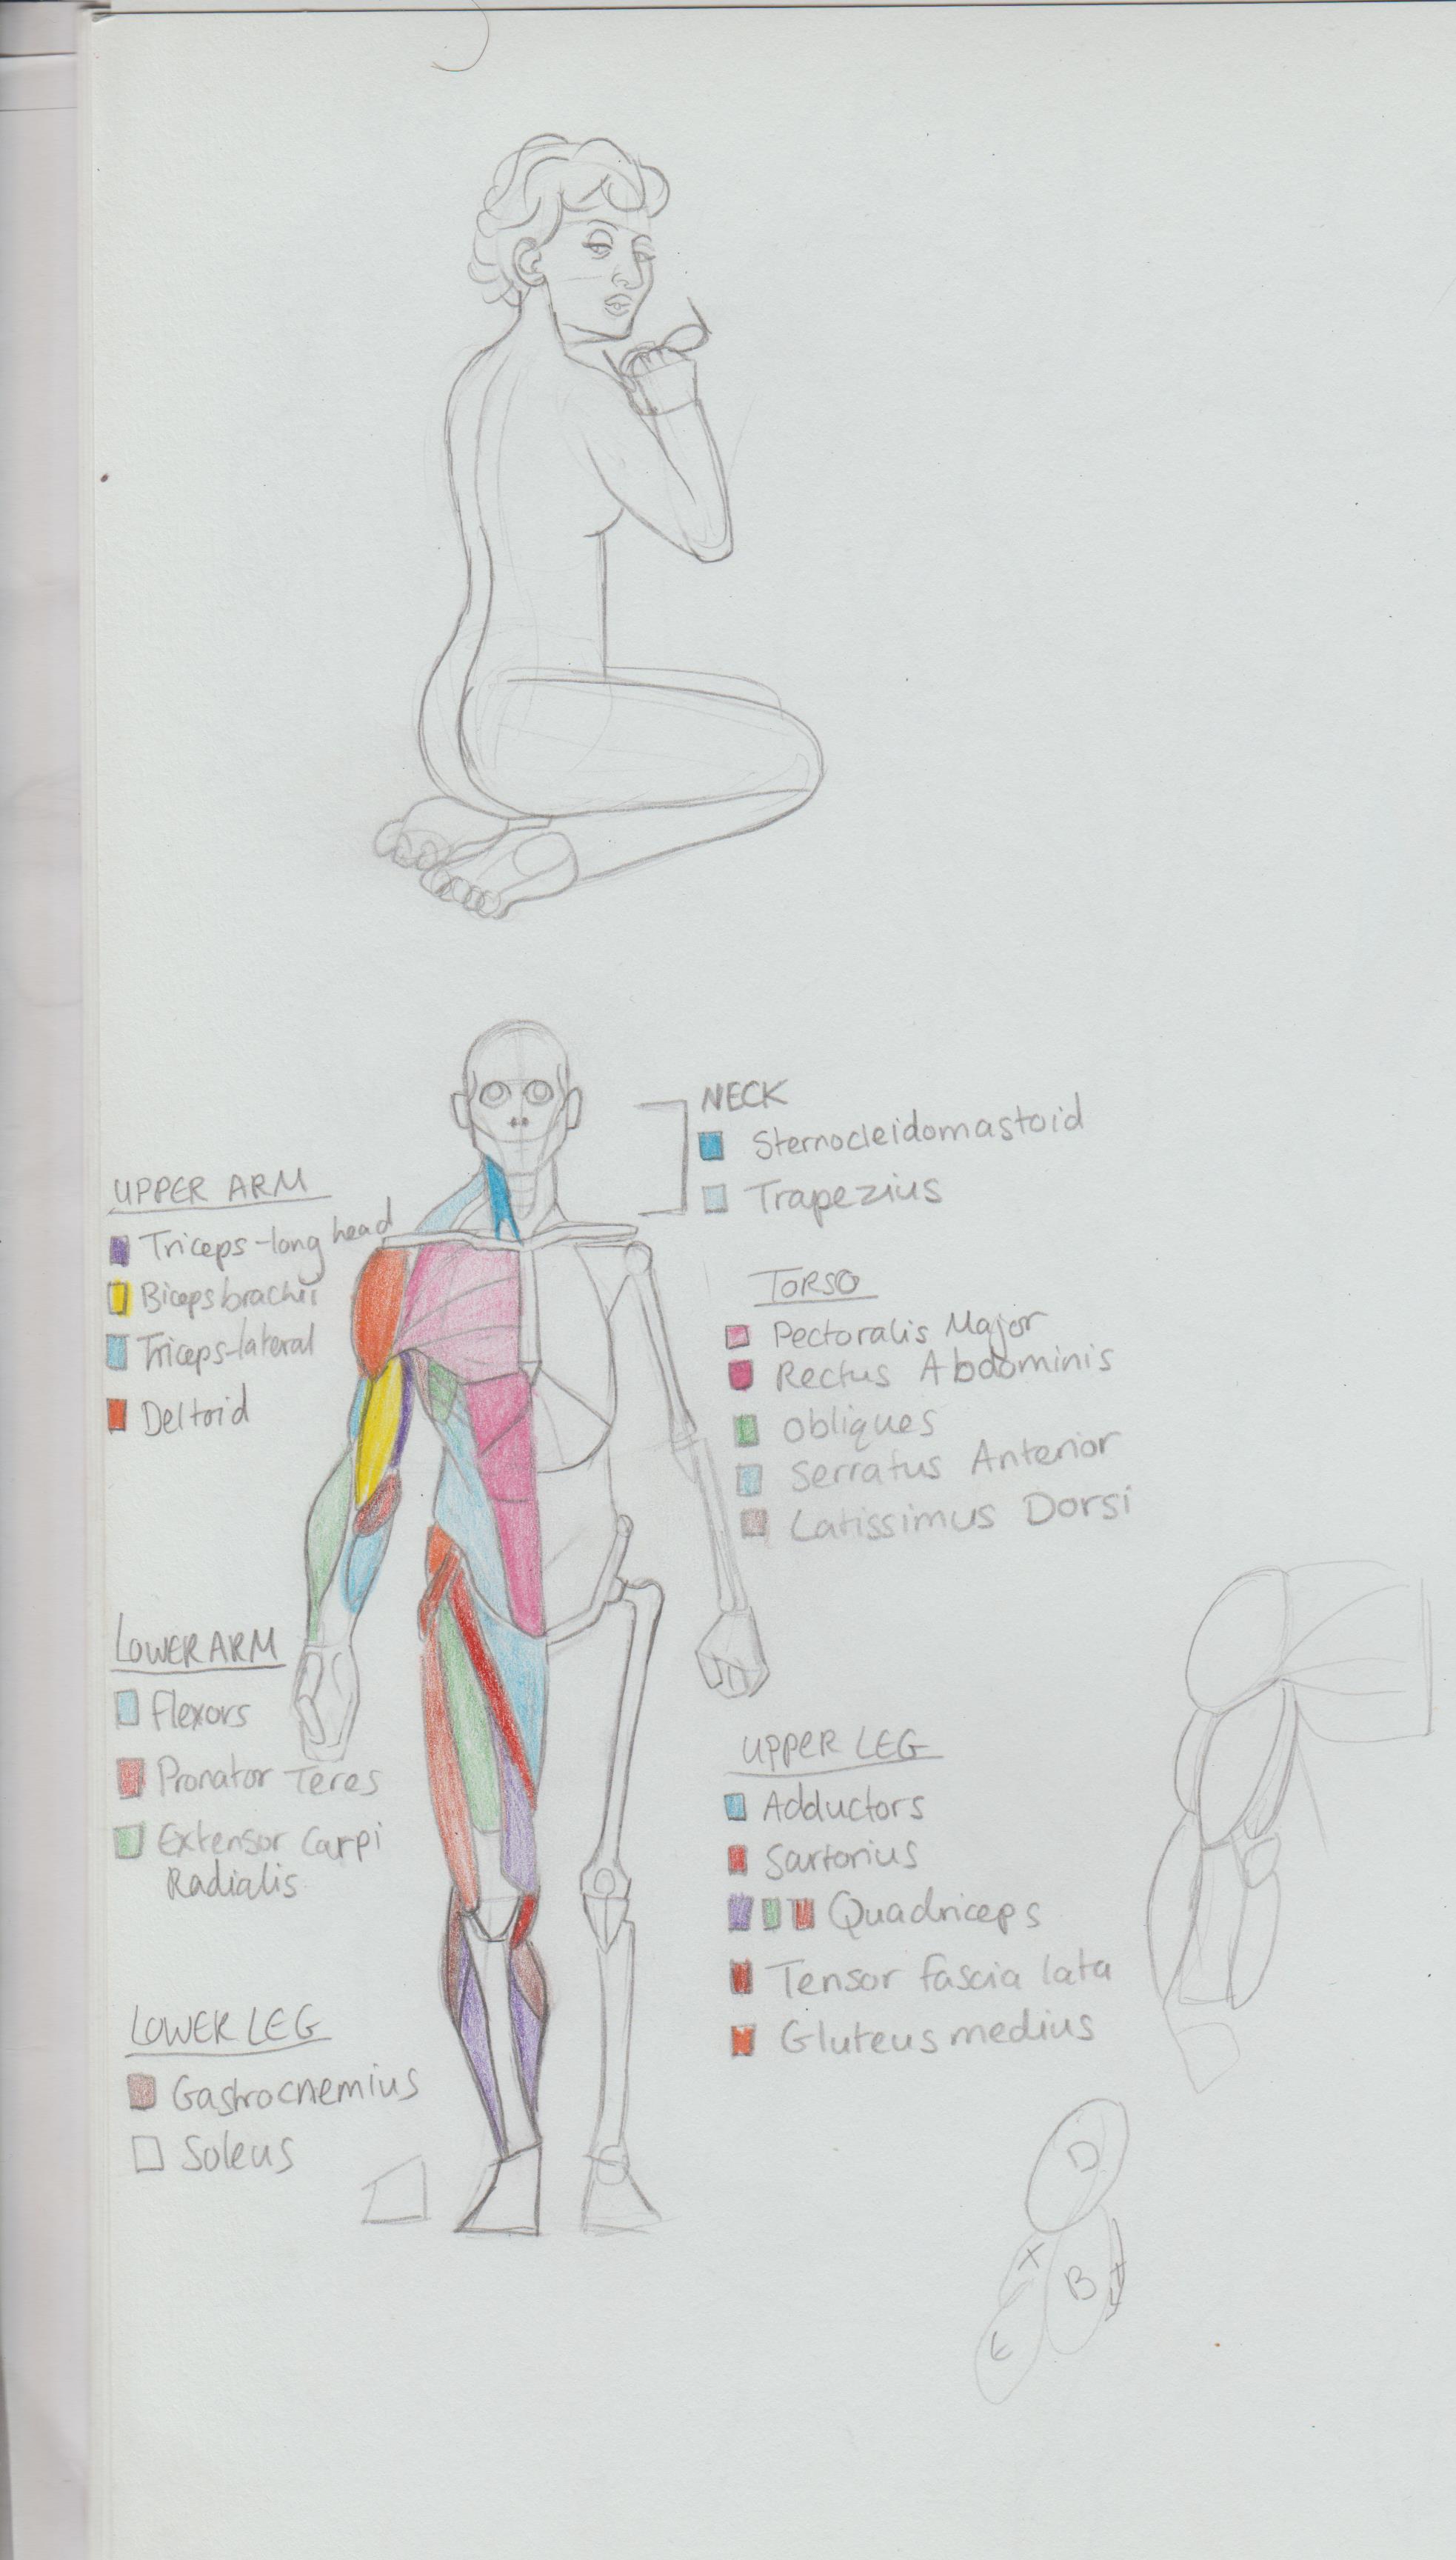 NECK
Sternocleidomastoid
Trapezius
UPPER ARM
Triceps-long head
Biceps brachii
Triceps-lateral
Deltoid
TORSO
Pectoralis Major
Rectus Abdominis
Obliques
Serratus Anterior
Latissimus Dorsi
LOWER ARM
Flexors
Pronator Teres
Extensor Carpi
Radialis
UPPER LEG
Adductors
Sartorius
Quadriceps
Tensor fascia lata
Gluteus medius
LOWER LEG
Gastrocnemius
Soleus
D
B
E